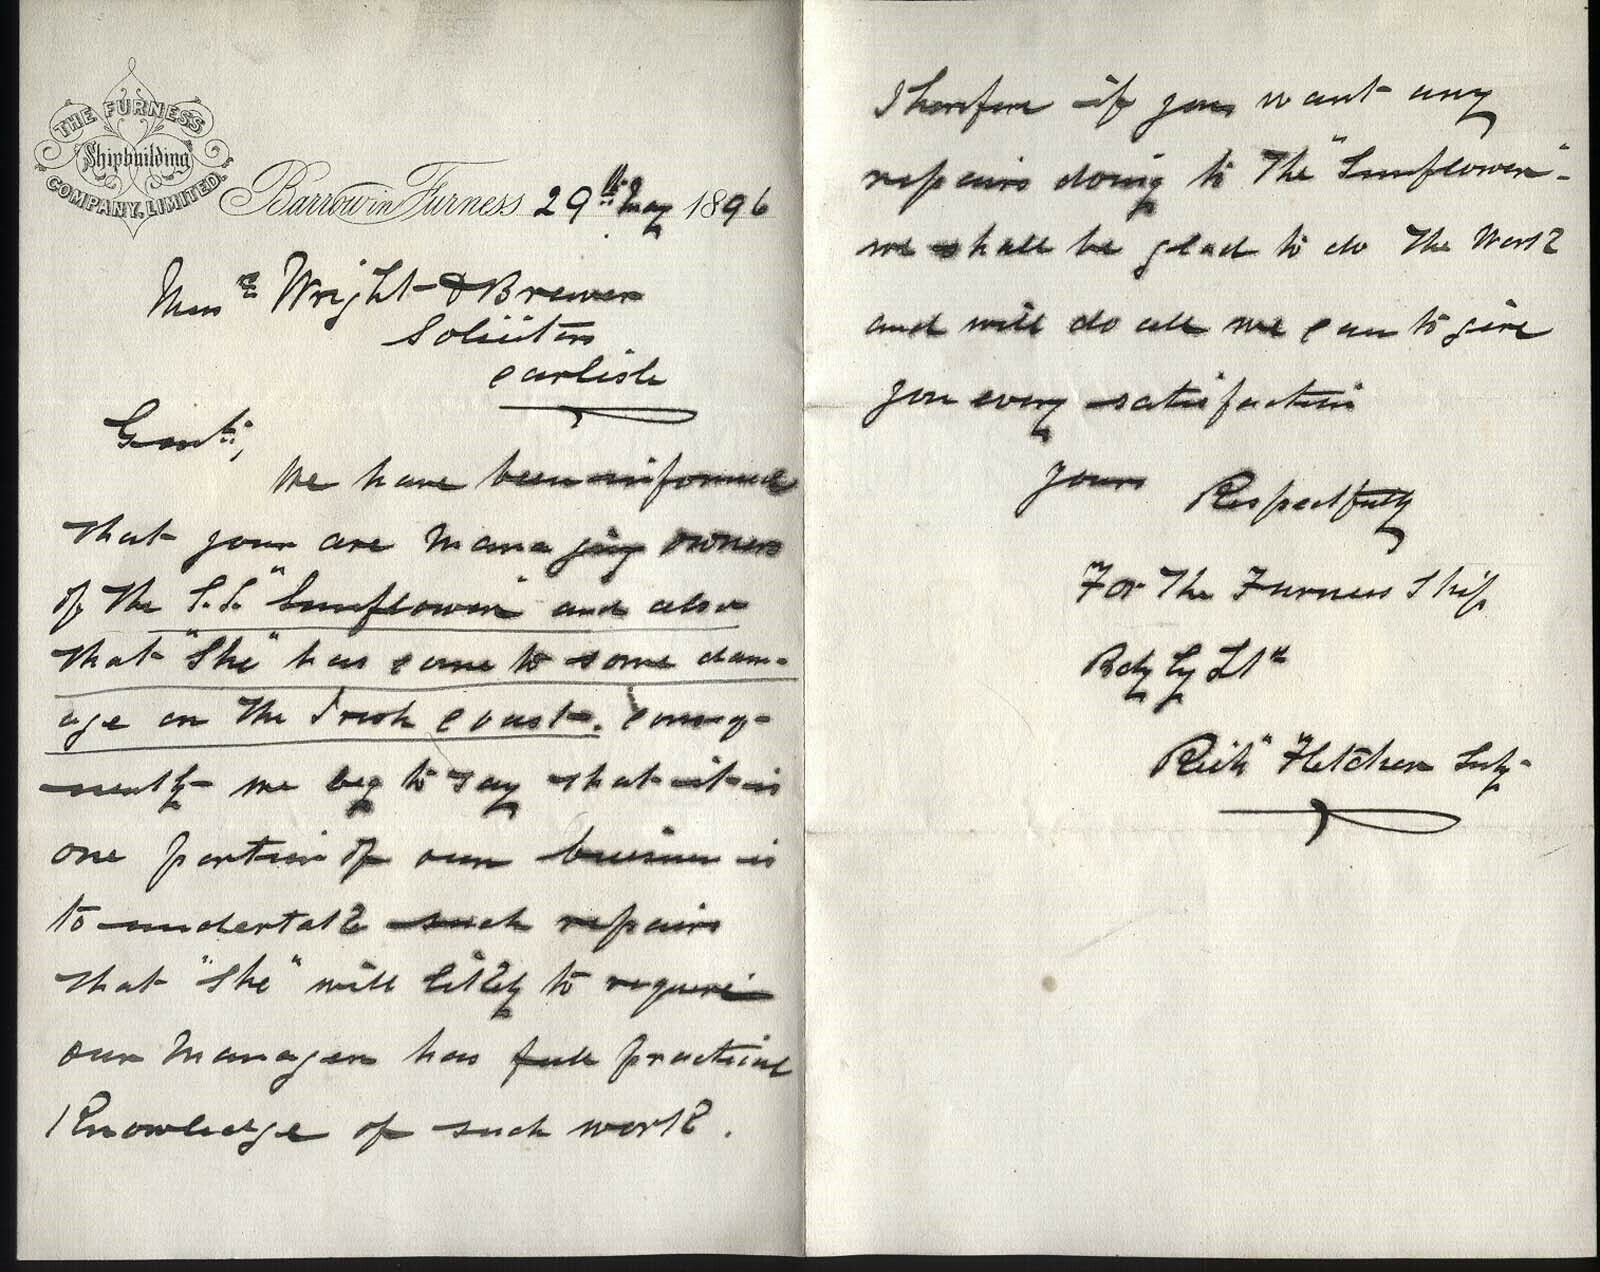 THE FURNESS
Shipbuilding
COMPANY, LIMITED.
Barrow in Furness 29th May 1896
Messrs Wright & Brewer
Solicitors
Carlisle
Gents,
We have been informed
that your are managing owners
of the S.S. "Sunflower" and also
that "She" has came to some dam-
age on the Irish Coast. Conseq-
uently we beg to say that it is
one portion of our business
to undertake such repairs
that "She" will likely to require
our Manager has full practical
Knowledge of such work.
Therefore if you want any
repairs doing to the "Sunflower"-
we shall be glad to do the Work
and will do all we can to give
you every satisfaction
Yours Respectfully
For The Furness Ship
Bdg Cy Ltd
Richd Fletcher Secty-